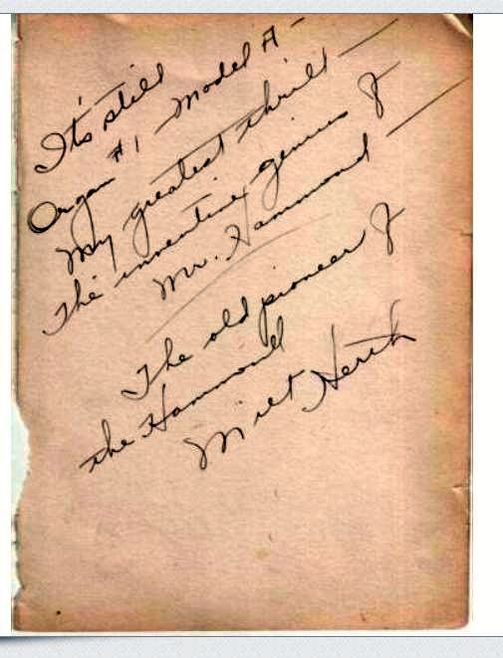 It's still
Organ #1 Model A —
My greatest thrill —
The inventive genius of
Mr. Hammond —
The old pioneer of
the Hammond
Milt Herth